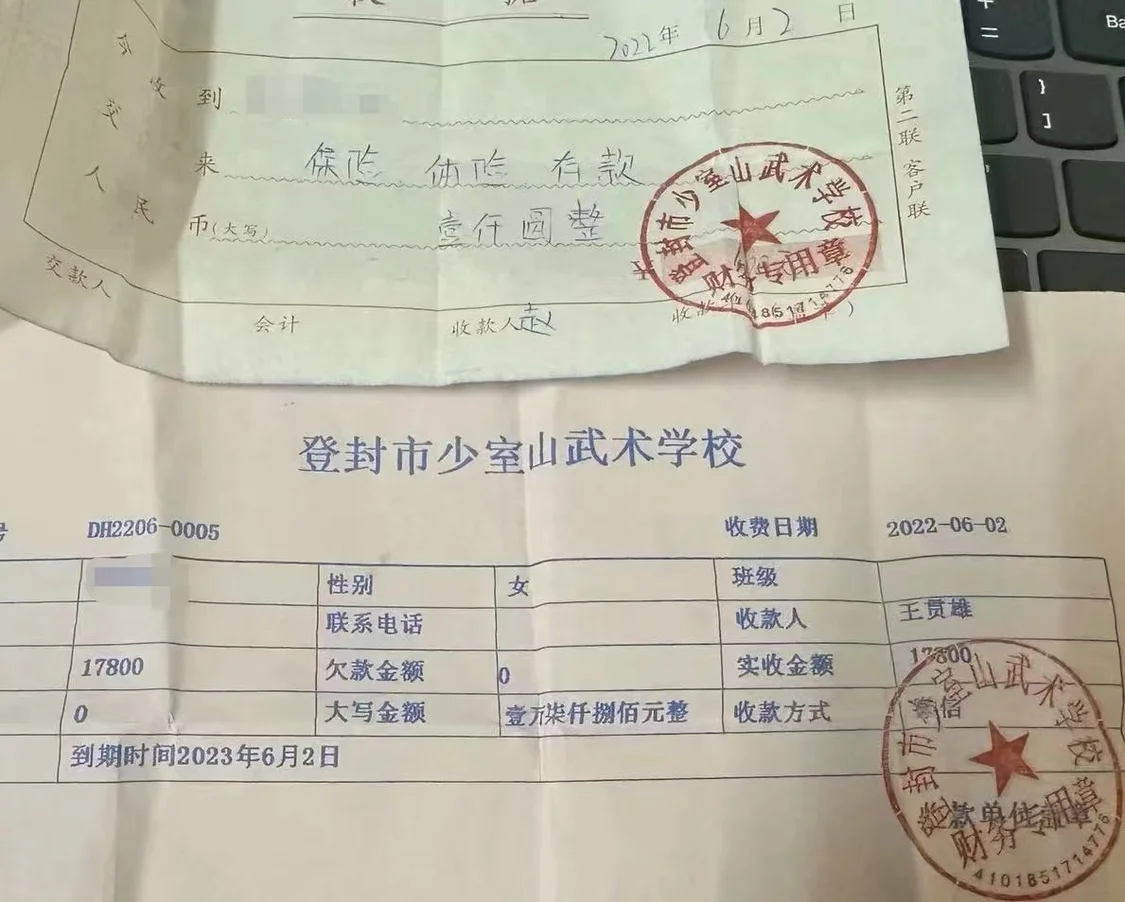 2022年 6月2日
今收到
交来 保险 体险 存款
人民币(大写) 壹仟圆整
第二联 客户联
登封市少室山武术学校
财务专用章
交款人
会计
收款人 赵
登封市少室山武术学校
号 DH2206-0005 收费日期 2022-06-02
性别 女 班级
联系电话 收款人 王贯雄
17800 欠款金额 0 实收金额 17800
0 大写金额 壹万柒仟捌佰元整 收款方式 微信
到期时间2023年6月2日
登封市少室山武术学校
款单位盖章
财务专用章
4101851714776
Ba
+
=
}
]